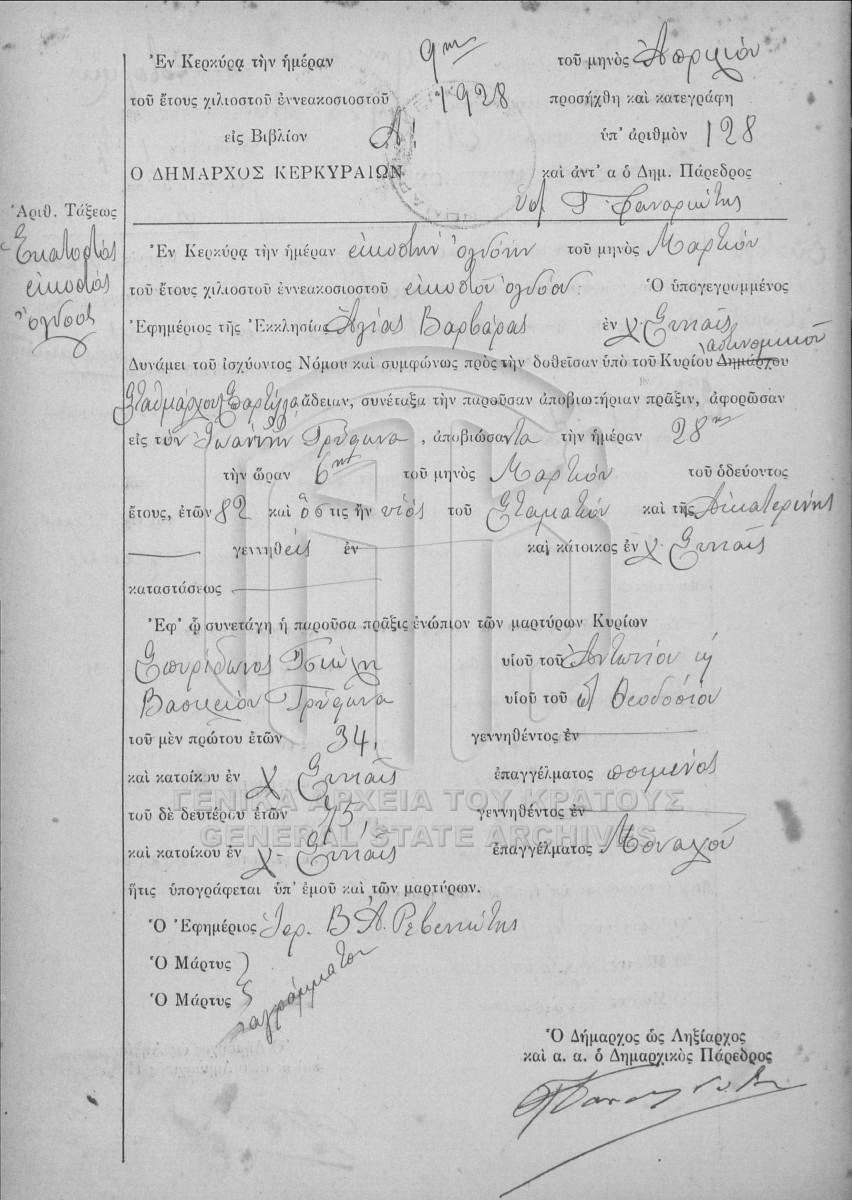 Ἐν Κερκύρᾳ τὴν ἡμέραν 9ην τοῦ μηνὸς Ἀπριλίου
τοῦ ἔτους χιλιοστοῦ ἐννεακοσιοστοῦ 1928 προσήχθη καὶ κατεγράφη
εἰς Βιβλίον Α! ὑπ' ἀριθμὸν 128
Ο ΔΗΜΑΡΧΟΣ ΚΕΡΚΥΡΑΙΩΝ καὶ ἀντ' α ὁ Δημ. Πάρεδρος
Φαναριώτης
Ἀριθ. Τάξεως
Ἑκατοστὸς
εἰκοστὸς
ὄγδοος
Ἐν Κερκύρᾳ τὴν ἡμέραν εἰκοστὴν ὀγδόην τοῦ μηνὸς Μαρτίου
τοῦ ἔτους χιλιοστοῦ ἐννεακοσιοστοῦ εἰκοστοῦ ὀγδόου. Ὁ ὑπογεγραμμένος
Ἐφημέριος τῆς Ἐκκλησίας Ἁγίας Βαρβάρας ἐν χ. Σιναῖς
ἀστυνομικοῦ
Δυνάμει τοῦ ἰσχύοντος Νόμου καὶ συμφώνως πρὸς τὴν δοθεῖσαν ὑπὸ τοῦ Κυρίου Δημάρχου
Σταθμάρχου Σπαρτύλα ἄδειαν, συνέταξα τὴν παροῦσαν ἀποβιωτήριαν πρᾶξιν, ἀφορῶσαν
εἰς τὸν Ἰωάννην Γρύφωνα, ἀποβιώσαντα τὴν ἡμέραν 28ην
τὴν ὥραν 6ην τοῦ μηνὸς Μαρτίου τοῦ ὁδεύοντος
ἔτους, ἐτῶν 82 καὶ ὅστις ἦν υἱὸς τοῦ Σταματίου καὶ τῆς Αἰκατερίνης
γεννηθεὶς ἐν καὶ κάτοικος ἐν χ. Σιναῖς
καταστάσεως
Ἐφ' ᾧ συνετάγη ἡ παροῦσα πρᾶξις ἐνώπιον τῶν μαρτύρων Κυρίων
Σπυρίδωνος υἱοῦ τοῦ Ἀντωνίου
Βασιλείου Γρύφωνα υἱοῦ τοῦ Θεοδοσίου
τοῦ μὲν πρώτου ἐτῶν 34, γεννηθέντος ἐν
καὶ κατοίκου ἐν χ Σιναῖς ἐπαγγέλματος ποιμένος
ΓΕΝΙΚΑ ΑΡΧΕΙΑ ΤΟΥ ΚΡΑΤΟΥΣ
τοῦ δὲ δευτέρου ἐτῶν γεννηθέντος ἐν
GENERAL STATE ARCHIVES
καὶ κατοίκου ἐν χ. Σιναῖς ἐπαγγέλματος Μοναχοῦ
ἥτις ὑπογράφεται ὑπ' ἐμοῦ καὶ τῶν μαρτύρων.
Ὁ Ἐφημέριος Ἱερ. Β Α.
Ὁ Μάρτυς
Ὁ Μάρτυς
ἀγράμματοι
Ὁ Δήμαρχος ὡς Ληξίαρχος
καὶ α. α. ὁ Δημαρχικὸς Πάρεδρος